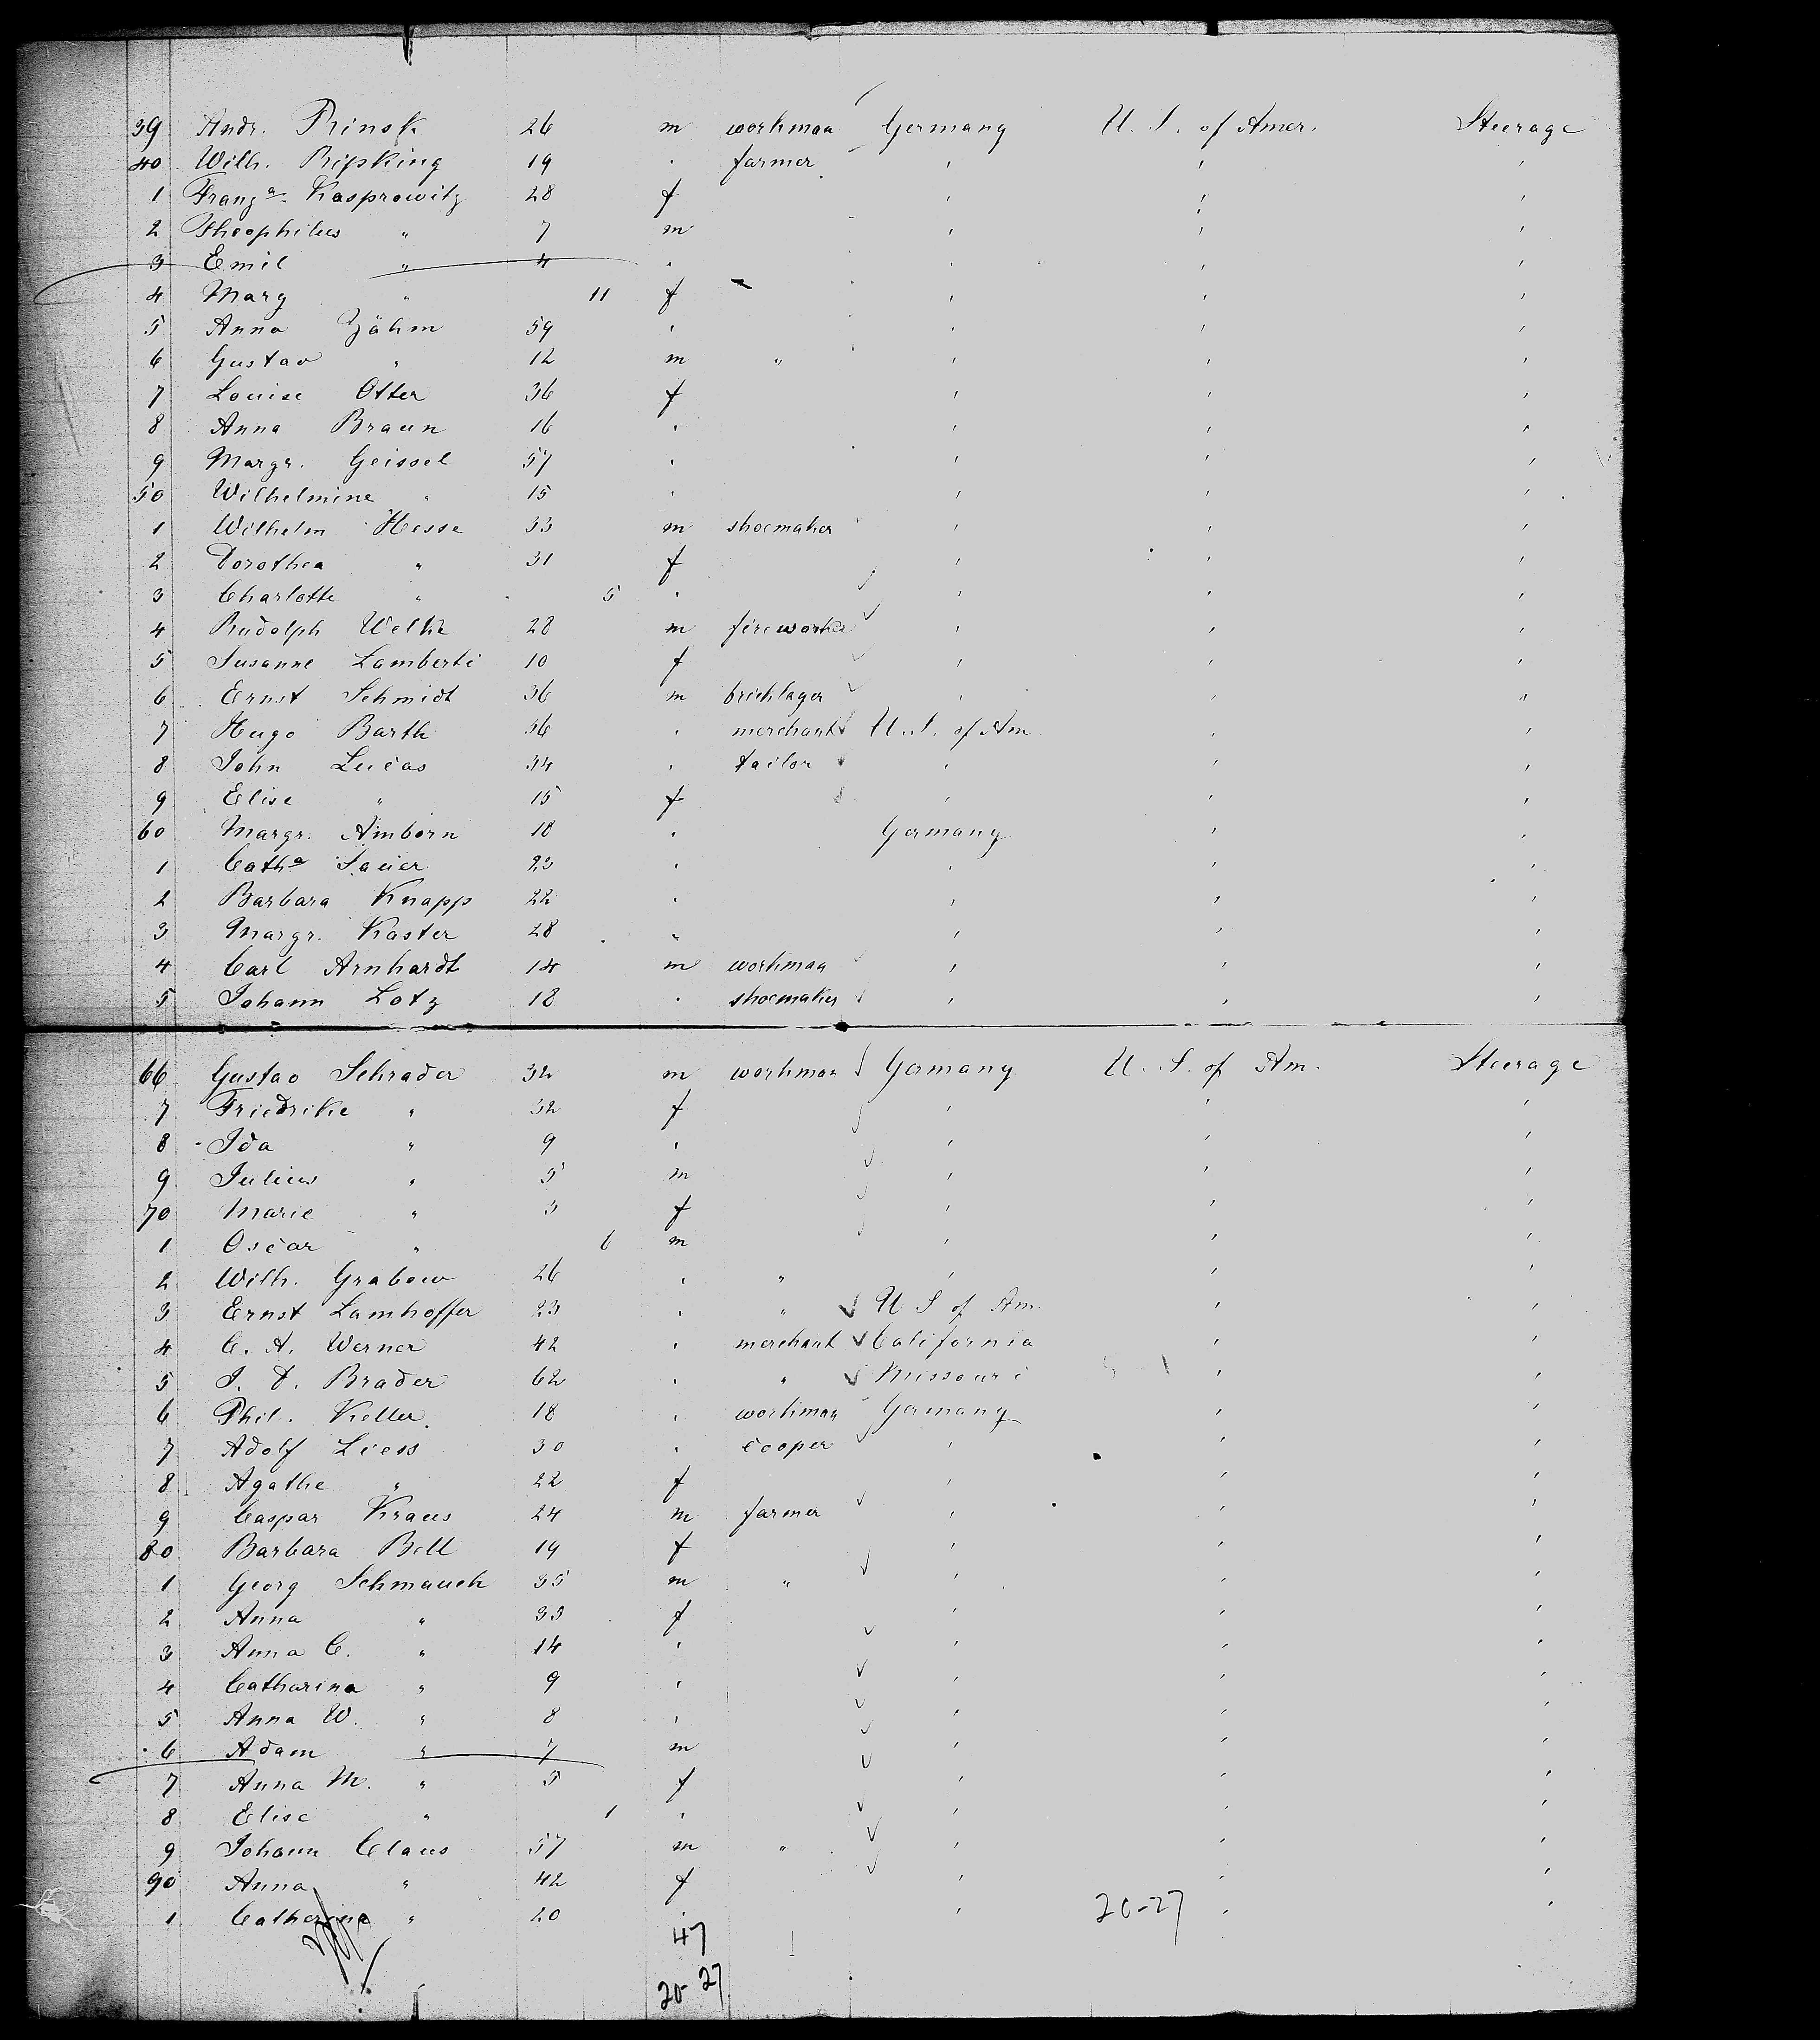 39 Andr. Prinsk 26 m workman Germany U. S. of Amer. Steerage
40 Wilh. Ripking 19 " farmer " " "
1 Franza Kasprowitz 28 f " " "
2 Theophilus " 7 m " " "
3 Emil " 4 " " " "
4 Mary " 11 f " " "
5 Anna Zjähm 59 " " " "
6 Gustav " 12 m " " " "
7 Louise Otter 36 f " " "
8 Anna Braun 16 " " " "
9 Margr. Geissel 57 " " " "
50 Wilhelmine " 15 " " " "
1 Wilhelm Hesse 33 m shoemaker " " "
2 Dorothea " 31 f " " "
3 Charlotte " 5 " " " "
4 Rudolph Welke 28 m fireworker " " "
5 Susanne Lamberti 10 f " " "
6 Ernst Schmidt 36 m bricklayer " " "
7 Hugo Barth 36 " merchant U. S. of Am. " "
8 John Lucas 34 " tailor " " "
9 Elise " 15 f " " "
60 Margr. Amborn 18 " Germany " "
1 Catha Sauer 23 " " " "
2 Barbara Knapp 22 " " " "
3 Margr. Kaster 28 " " " "
4 Carl Arnhardt 14 m workman " " "
5 Johann Lotz 18 " shoemaker " " "
66 Gustav Schrader 32 m workman Germany U. S. of Am. Steerage
7 Friedrike " 32 f " " "
8 Ida " 9 " " " "
9 Julius " 5 m " " "
70 Marie " 3 f " " "
1 Oscar " 6 m " " "
2 Wilh. Grabow 26 " " " " "
3 Ernst Lamhoffer 23 " " U S of Am. " "
4 C. A. Werner 42 " merchant California " "
5 J. D. Brader 62 " " Missouri " "
6 Phil. Keller 18 " workman Germany " "
7 Adolf Liess 30 " cooper " " "
8 Agathe " 22 f " " "
9 Caspar Kraus 24 m farmer " " "
80 Barbara Bell 19 f " " "
1 Georg Schmauch 35 m " " " "
2 Anna " 33 f " " "
3 Anna C. " 14 " " " "
4 Catharina " 9 " " " "
5 Anna W. " 8 " " " "
6 Adam " 7 m " " "
7 Anna M. " 5 f " " "
8 Elise " 1 " " " "
9 Johann Claus 57 m " " " "
90 Anna " 42 f " " "
1 Catherine " 20 " " 20-27 " "
47
20-27